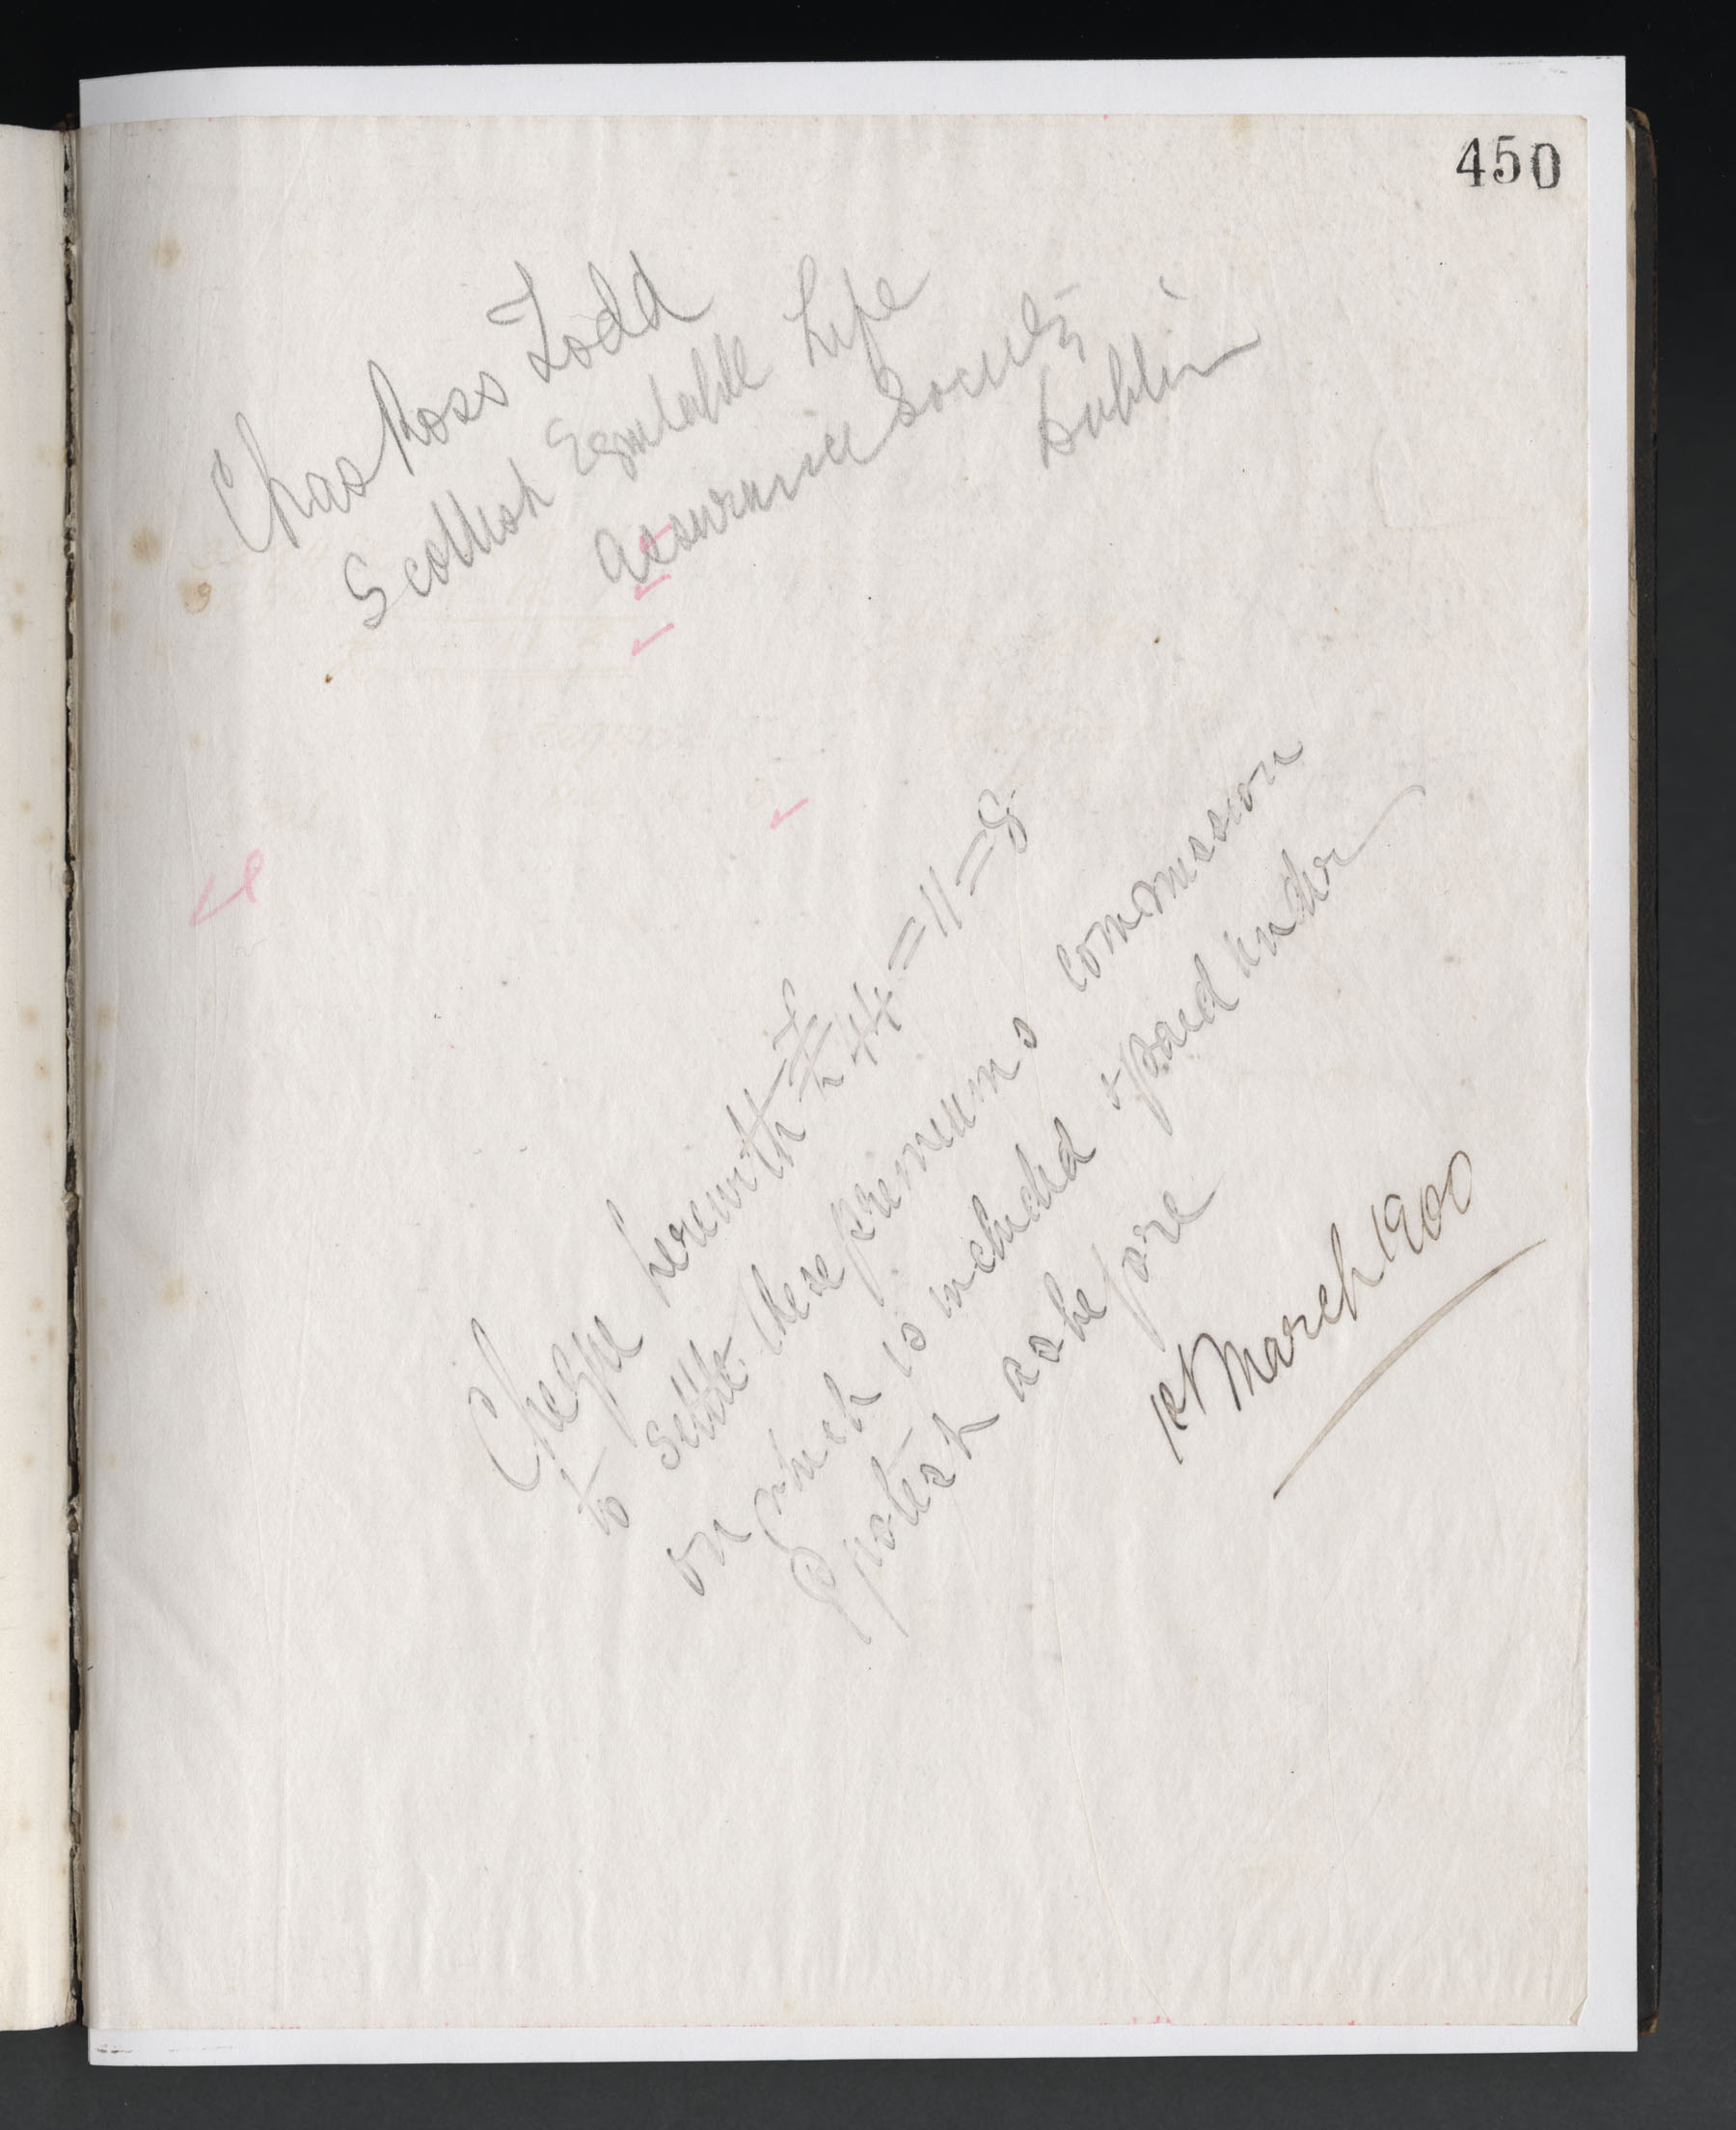 450
Chas Ross Todd
Scottish Equitable Life
Assurance Society
Dublin
Cheque herewith £44=11=8
to settle these premiums commission
on which is included & paid under
protest as before
1st March 1900